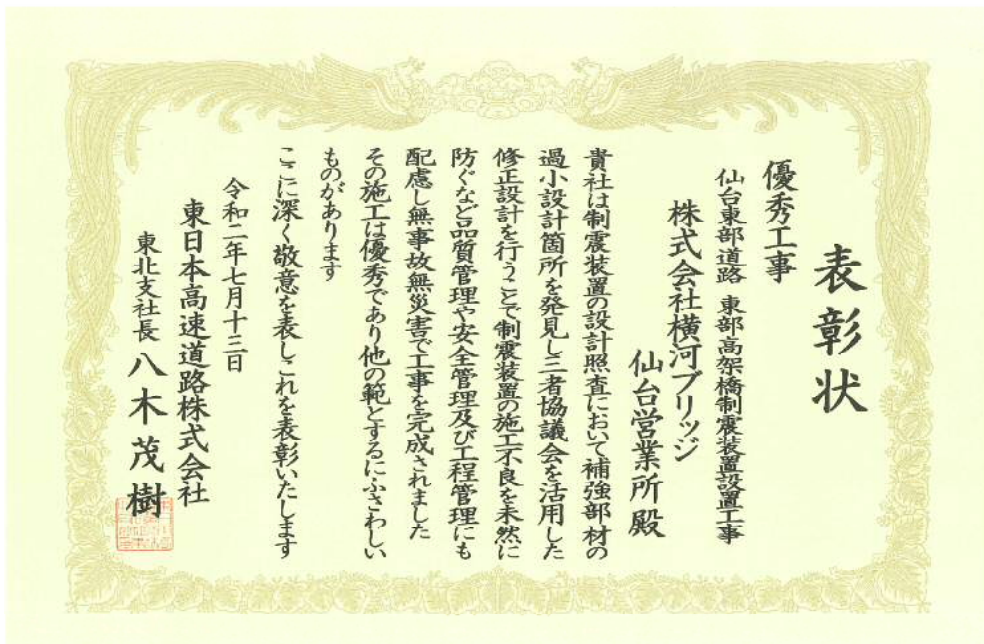 表彰状
優秀工事
仙台東部道路 東部高架橋制震装置設置工事
株式会社横河ブリッジ
仙台営業所殿
貴社は制震装置の設計照査において補強部材の
過小設計箇所を発見し三者協議会を活用した
修正設計を行うことで制震装置の施工不良を未然に
防ぐなど品質管理や安全管理及び工程管理にも
配慮し無事故無災害で工事を完成されました
その施工は優秀であり他の範とするにふさわしい
ものがあります
ここに深く敬意を表しこれを表彰いたします
令和二年七月十三日
東日本高速道路株式会社
東北支社長 八木茂樹